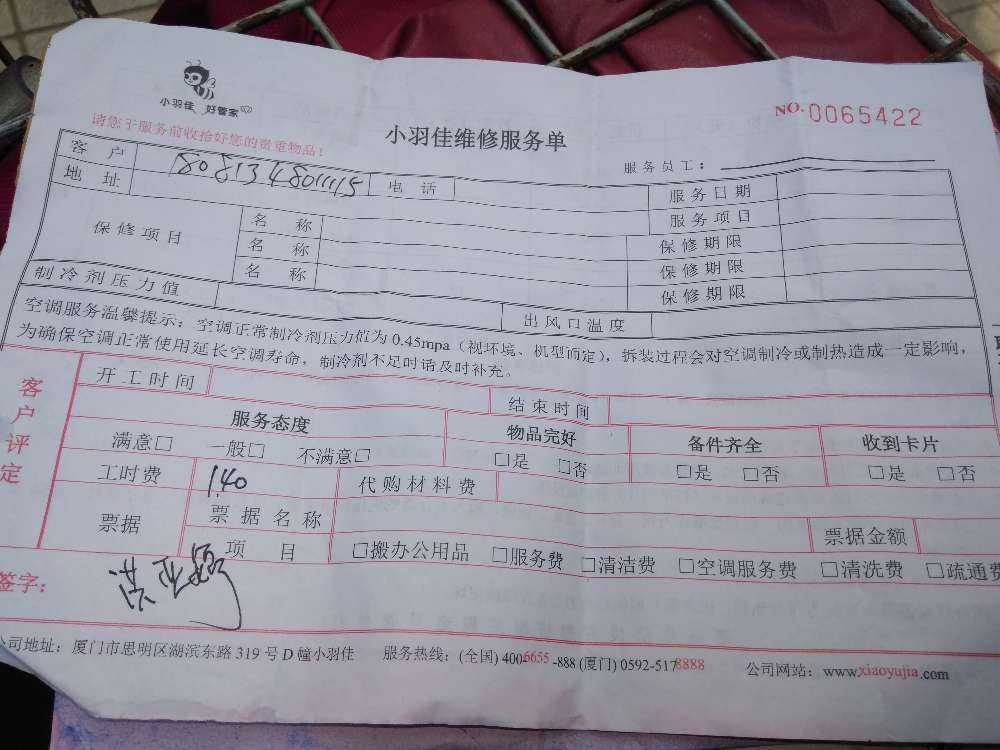 小羽佳 好管家
NO.0065422
请您于服务前收拾好您的贵重物品！
小羽佳维修服务单
服务员工：
客户 电话 服务日期
8081348011115
地址 服务项目
保修项目 名称 保修期限
名称 保修期限
名称 保修期限
制冷剂压力值 出风口温度
空调服务温馨提示：空调正常制冷剂压力值为0.45mpa（视环境、机型而定），拆装过程会对空调制冷或制热造成一定影响，
为确保空调正常使用延长空调寿命，制冷剂不足时请及时补充。
客户评定 开工时间 结束时间
服务态度 物品完好 备件齐全 收到卡片
满意□ 一般□ 不满意□ □是 □否 □是 □否 □是 □否
工时费 140 代购材料费
票据 票据名称 票据金额
项目 □搬办公用品 □服务费 □清洁费 □空调服务费 □清洗费 □疏通费
签字：
公司地址：厦门市思明区湖滨东路319号D幢小羽佳 服务热线：(全国)400-6655-888(厦门)0592-5178888 公司网站：www.xiaoyujia.com